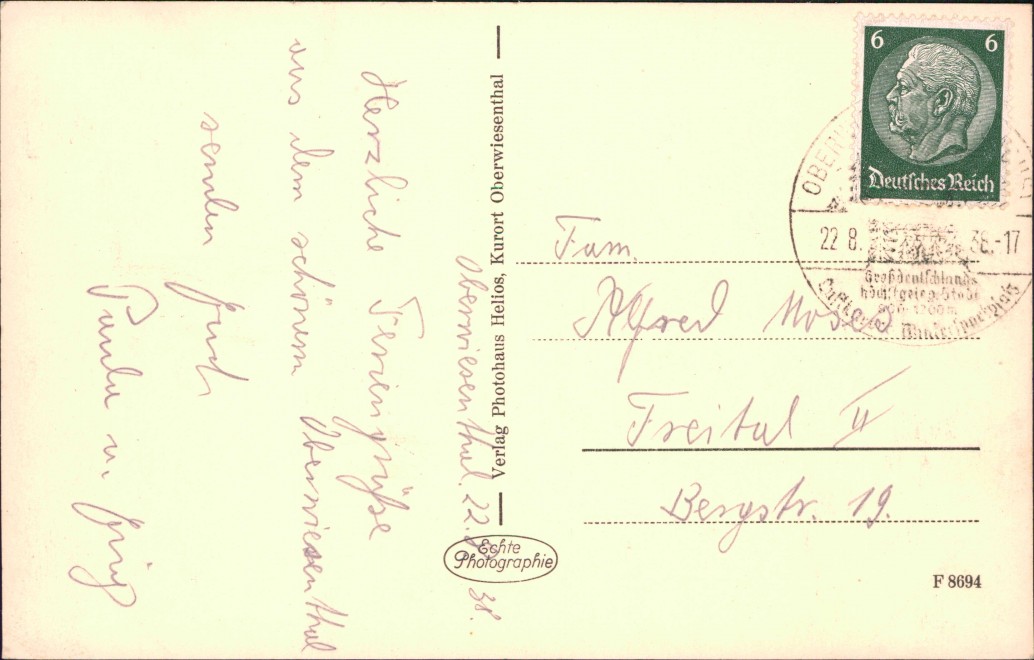 Oberwiesenthal. 22.8.38.
Herzliche Feriengrüße
aus dem schönem Oberwiesenthal
senden Euch
Paula u.
Verlag Photohaus Helios, Kurort Oberwiesenthal
Echte
Photographie
6 6
Deutsches Reich
22 8. 38.-17
Großdeutschlands
höchstgeleg. Stadt
Luftkurort Wintersportplatz
Fam.
Alfred
Freital II
Bergstr. 19.
F 8694